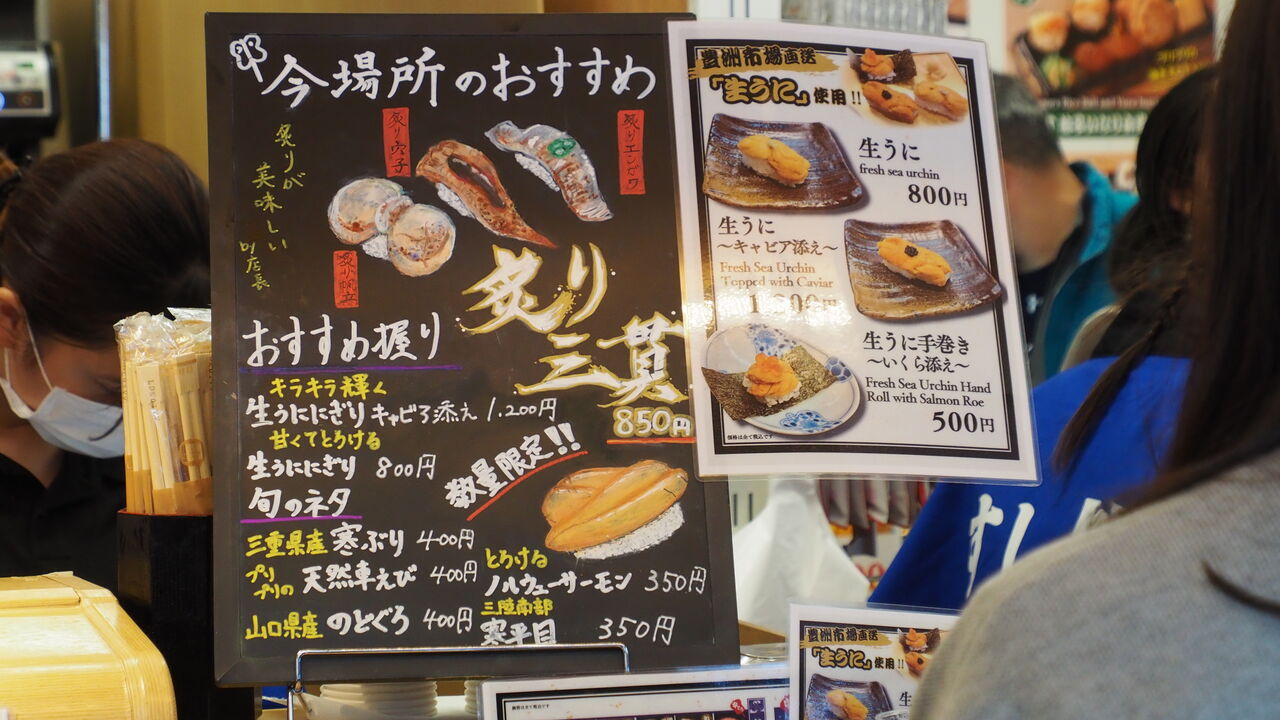 今場所のおすすめ
炙りが
美味しい
by店長
炙り穴子
炙りエンガワ
炙り帆立
炙り
三貫
850円
おすすめ握り
キラキラ輝く
生うににぎり キャビア添え 1.200円
甘くてとろける
生うににぎり 800円
数量限定!!
旬のネタ
三重県産 寒ぶり 400円
プリプリの 天然車えび 400円
山口県産 のどぐろ 400円
とろける
ノルウェーサーモン 350円
三陸南部
寒平目 350円
豊洲市場直送
「生うに」使用!!
生うに
fresh sea urchin
800円
生うに
～キャビア添え～
Fresh Sea Urchin
Topped with Caviar
1,200円
生うに手巻き
～いくら添え～
Fresh Sea Urchin Hand
Roll with Salmon Roe
500円
価格は全て税込です
豊洲市場直送
「生うに」使用!!